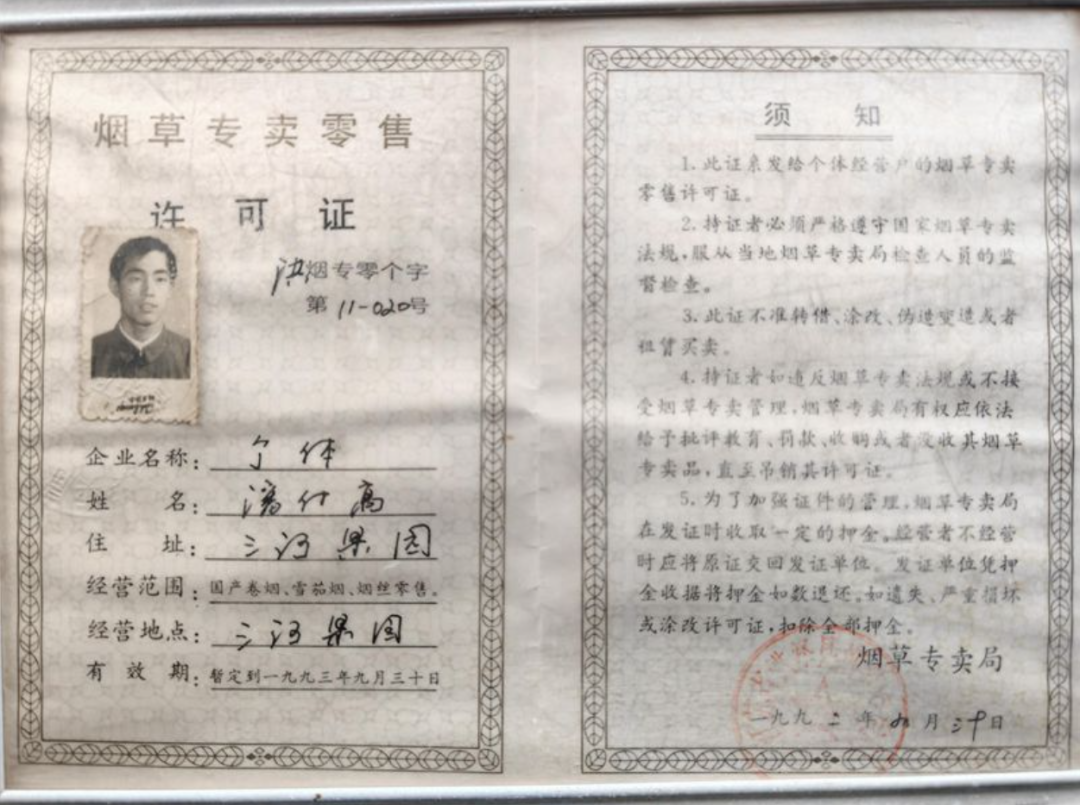 烟草专卖零售
许可证
洪烟专零个字
第11-020号
企业名称：个体
姓名：潘什高
住址：三河果园
经营范围：国产卷烟、雪茄烟、烟丝零售。
经营地点：三河果园
有效期：暂定到一九九三年九月三十日
须知
1.此证系发给个体经营户的烟草专卖
零售许可证。
2.持证者必须严格遵守国家烟草专卖
法规，服从当地烟草专卖局检查人员的监
督检查。
3.此证不准转借、涂改、伪造变造或者
租赁买卖。
4.持证者如违反烟草专卖法规或不接
受烟草专卖管理，烟草专卖局有权应依法
给予批评教育、罚款、收购或者没收其烟草
专卖品，直至吊销其许可证。
5.为了加强证件的管理，烟草专卖局
在发证时收取一定的押金。经营者不经营
时应将原证交回发证单位。发证单位凭押
金收据将押金如数退还。如遗失、严重损坏
或涂改许可证，扣除全部押金。
烟草专卖局
一九九二年九月三十日